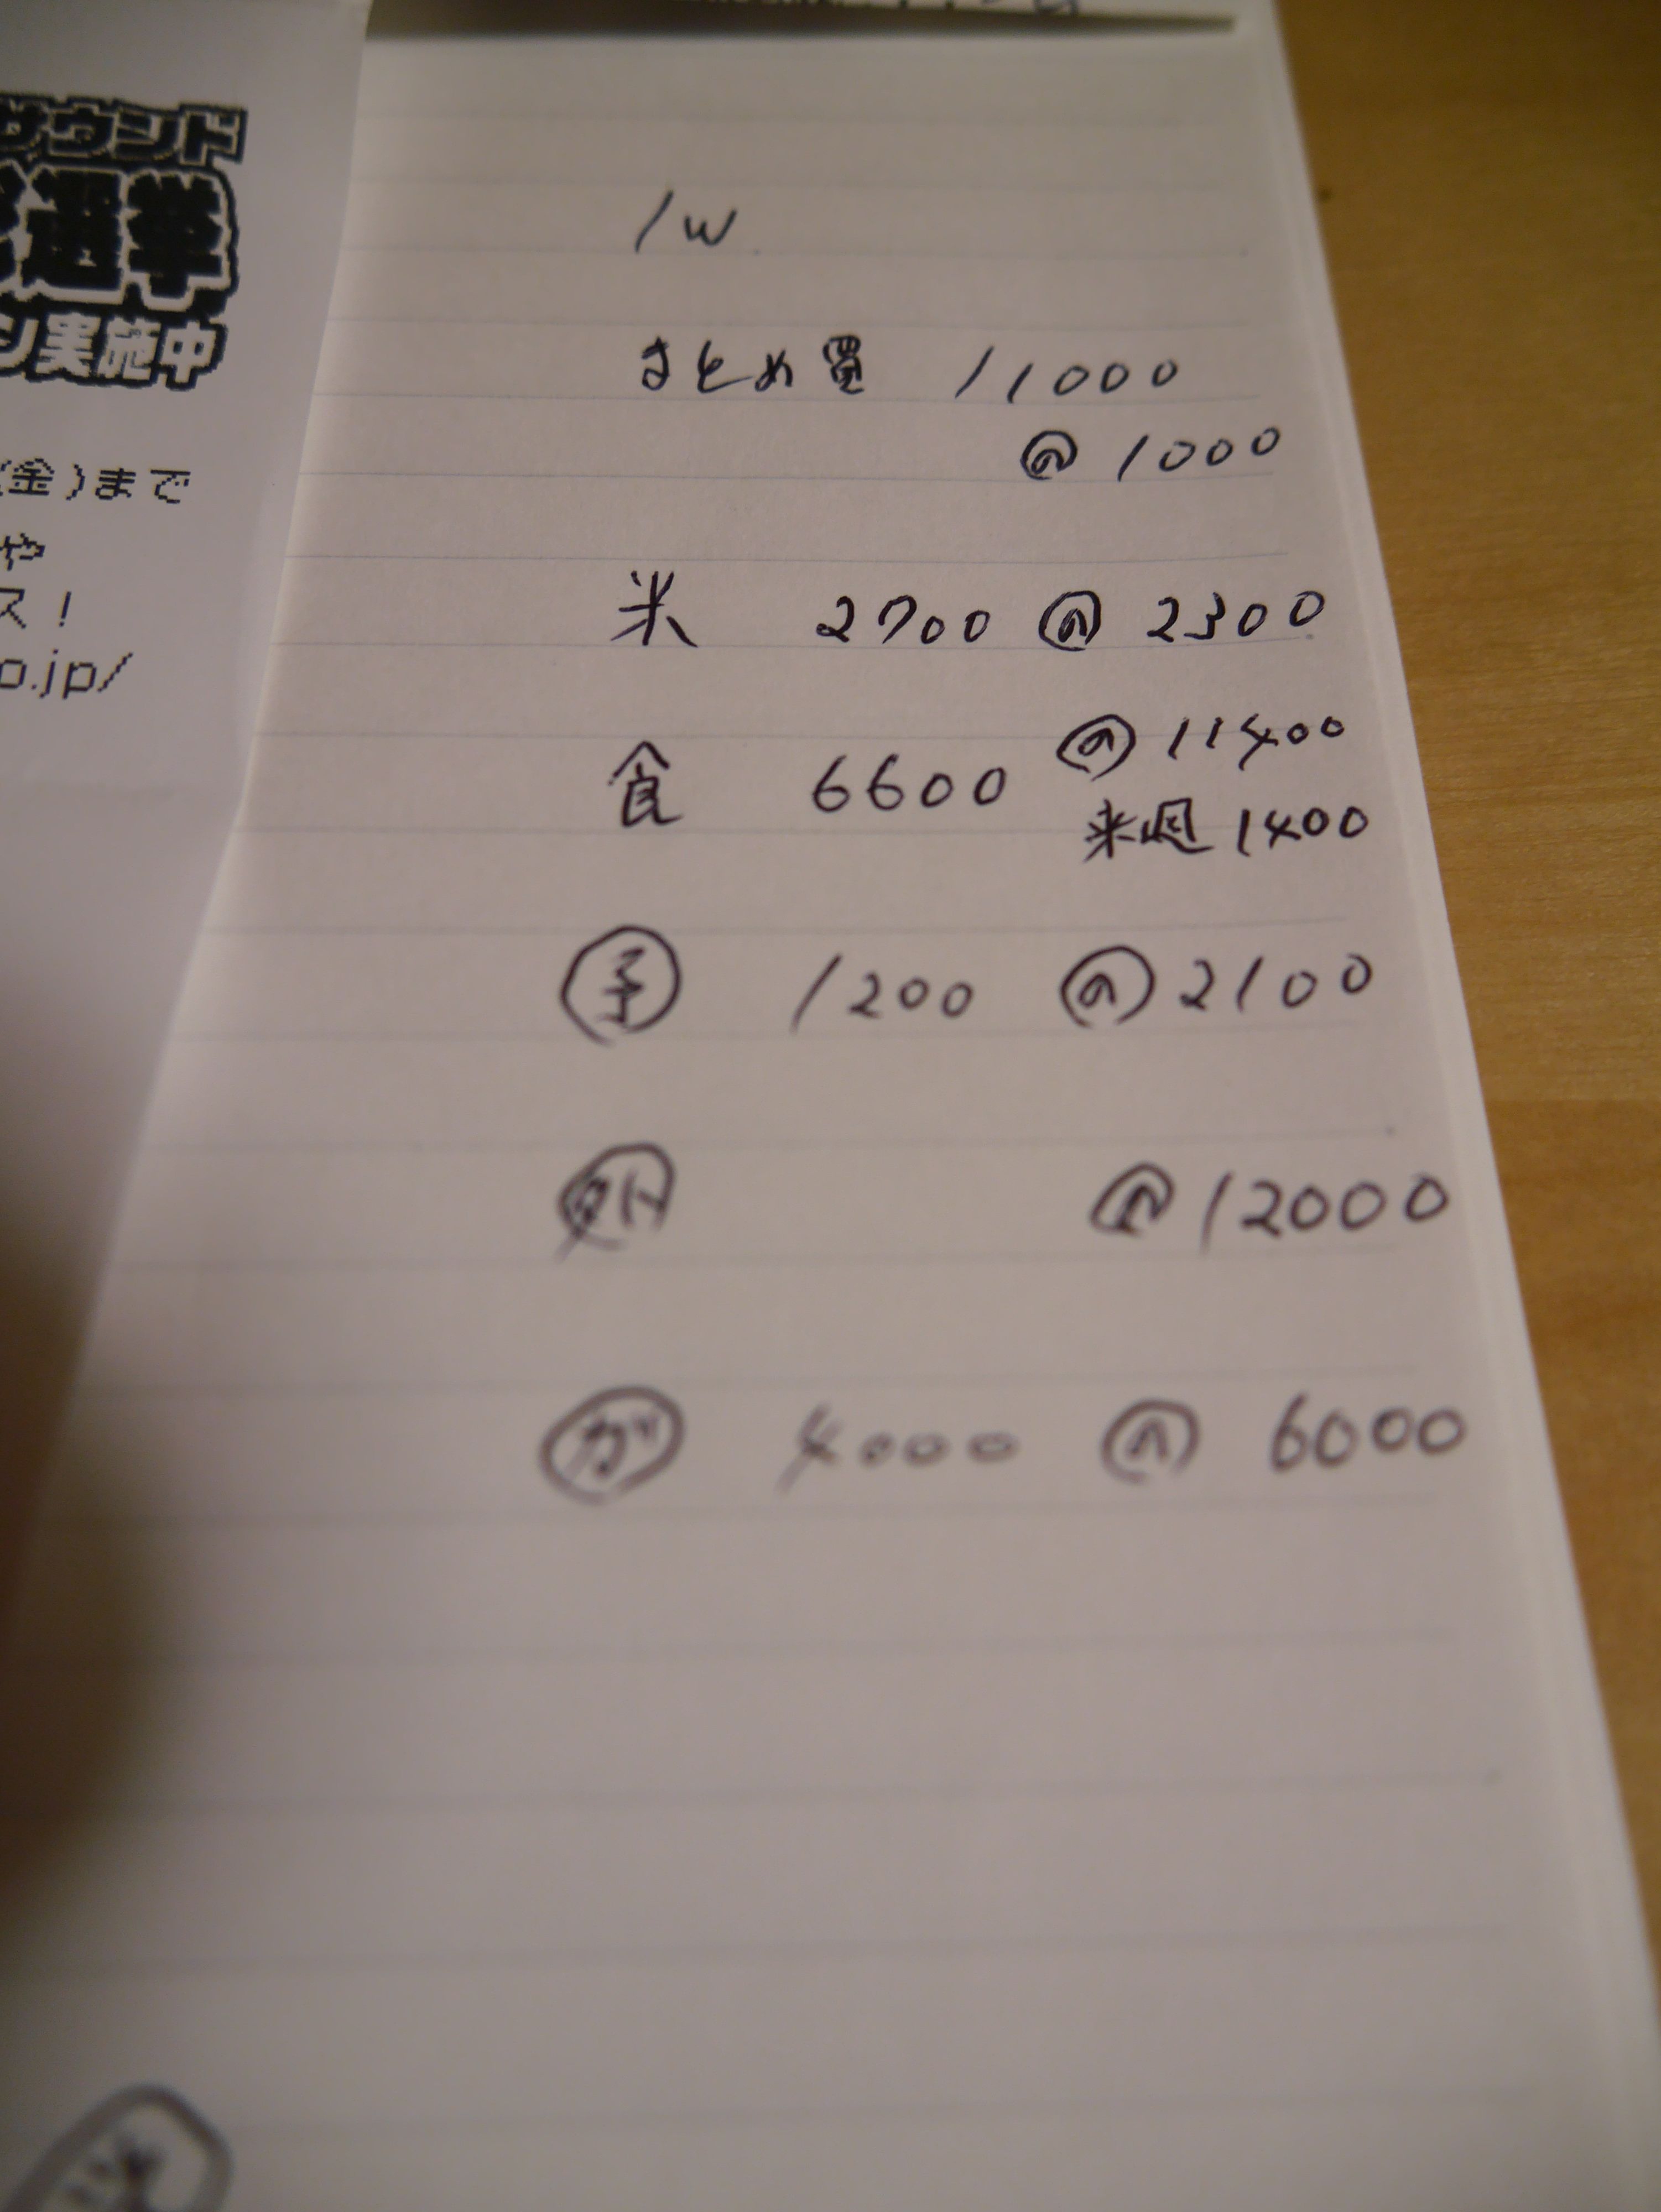 サウンド
選挙
ン実施中
(金)まで
や
ス!
o.jp/
1W
まとめ買 11000
の 1000
米 2700 の 2300
食 6600 の 11400
来週 1400
予 1200 の 2100
外 の 12000
ガ 4000 の 6000